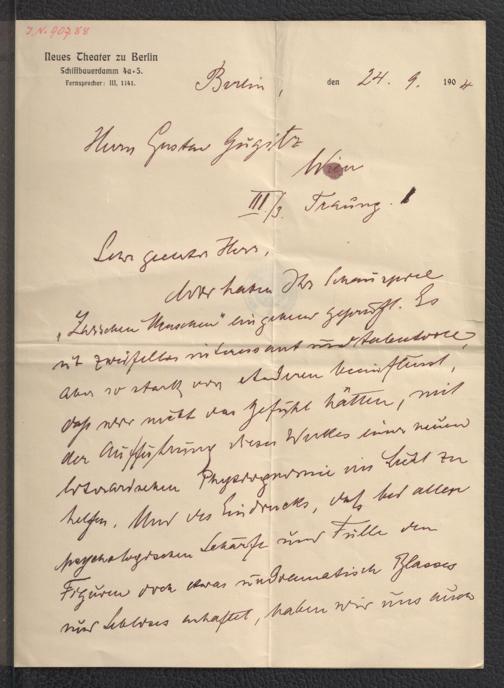 J.N. 90788
Neues Theater zu Berlin
Schiffbauerdamm 4a-5.
Fernsprecher: III, 1141.
Berlin, den 24. 9. 1904
Herrn Gustav Gugitz
Wien
III/3. Traung. 1
Sehr geehrter Herr,
Wir haben Ihr Schauspiel
„Zwischen Menschen" eingehend geprüft. Es
ist zweifellos interessant und talentvoll,
aber so stark von Anderen beeinflusst,
daß wir nicht das Gefühl hätten, mit
der Aufführung dieses Werkes einer neuen
literarischen Physiognomie ins Licht zu
helfen. Und des Eindrucks, daß bei aller
psychologischen Schärfe und Fülle den
Figuren doch etwas undramatisch Blasses
und Lebloses anhaftet, haben wir uns auch